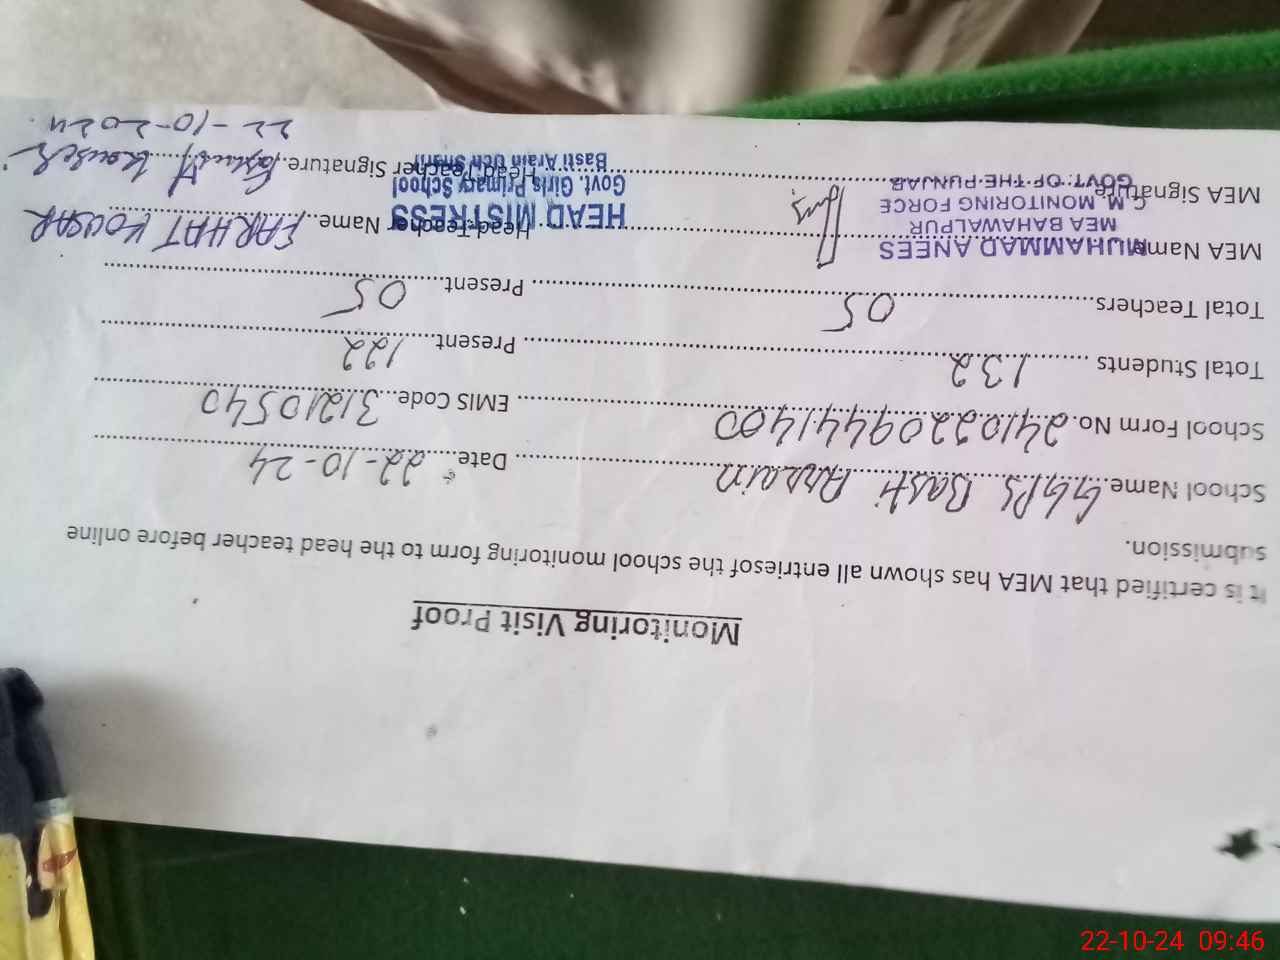 Monitoring Visit Proof
It is certified that MEA has shown all entriesof the school monitoring form to the head teacher before online
submission.
School Name GGPS Basti Arrain Date 22-10-24
School Form No. 241022094441400 EMIS Code 31210540
Total Students 132 Present 122
Total Teachers 05 Present 05
MEA Name MUHAMMAD ANEES Head Teacher Name FARHAT KOUSAR
MEA BAHAWALPUR
C.M. MONITORING FORCE
GOVT: OF THE PUNJAB
HEAD MISTRESS
Govt. Girls Primary School
Basti Arain Uch Sharif
MEA Signature Head Teacher Signature Farhat Kouser
22-10-2024
22-10-24 09:46